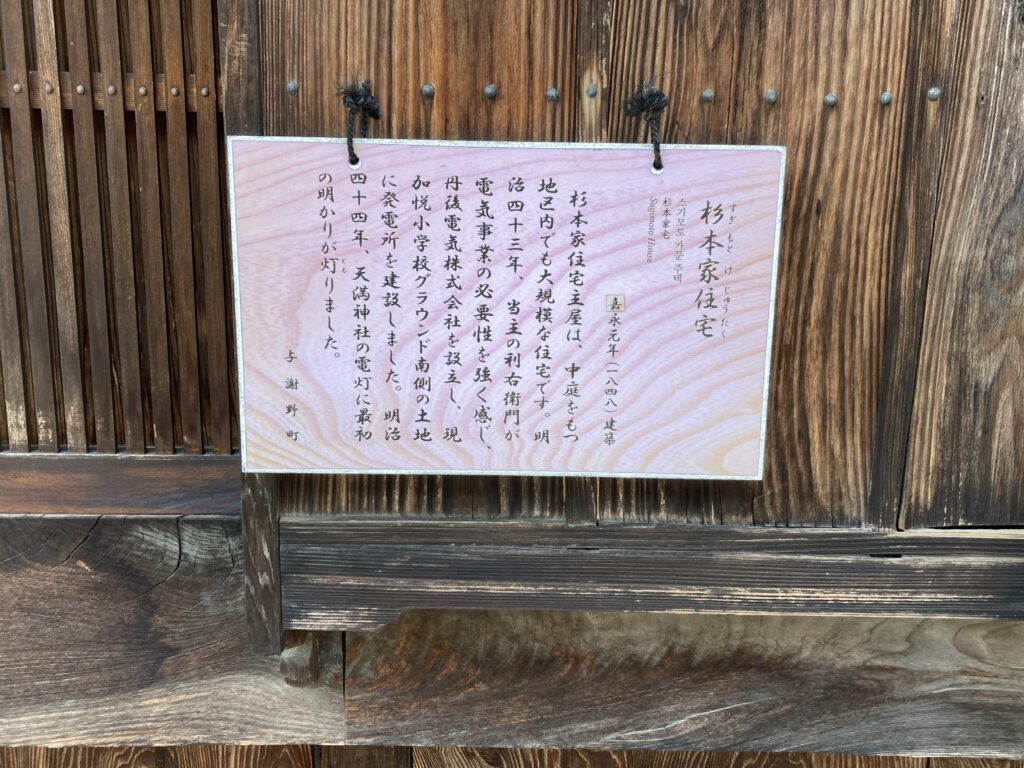 すぎもとけじゅうたく
杉本家住宅
스기모토 가문 주택
杉本家宅
Sugimoto House
嘉永元年(一八四八)建築
杉本家住宅主屋は、中庭をもつ
地区内でも大規模な住宅です。明
治四十三年、当主の利右衛門が
電気事業の必要性を強く感じ、
丹後電気株式会社を設立し、現
加悦小学校グラウンド南側の土地
に発電所を建設しました。明治
四十四年、天満神社の電灯に最初
の明かりが灯りました。
とも
与謝野町